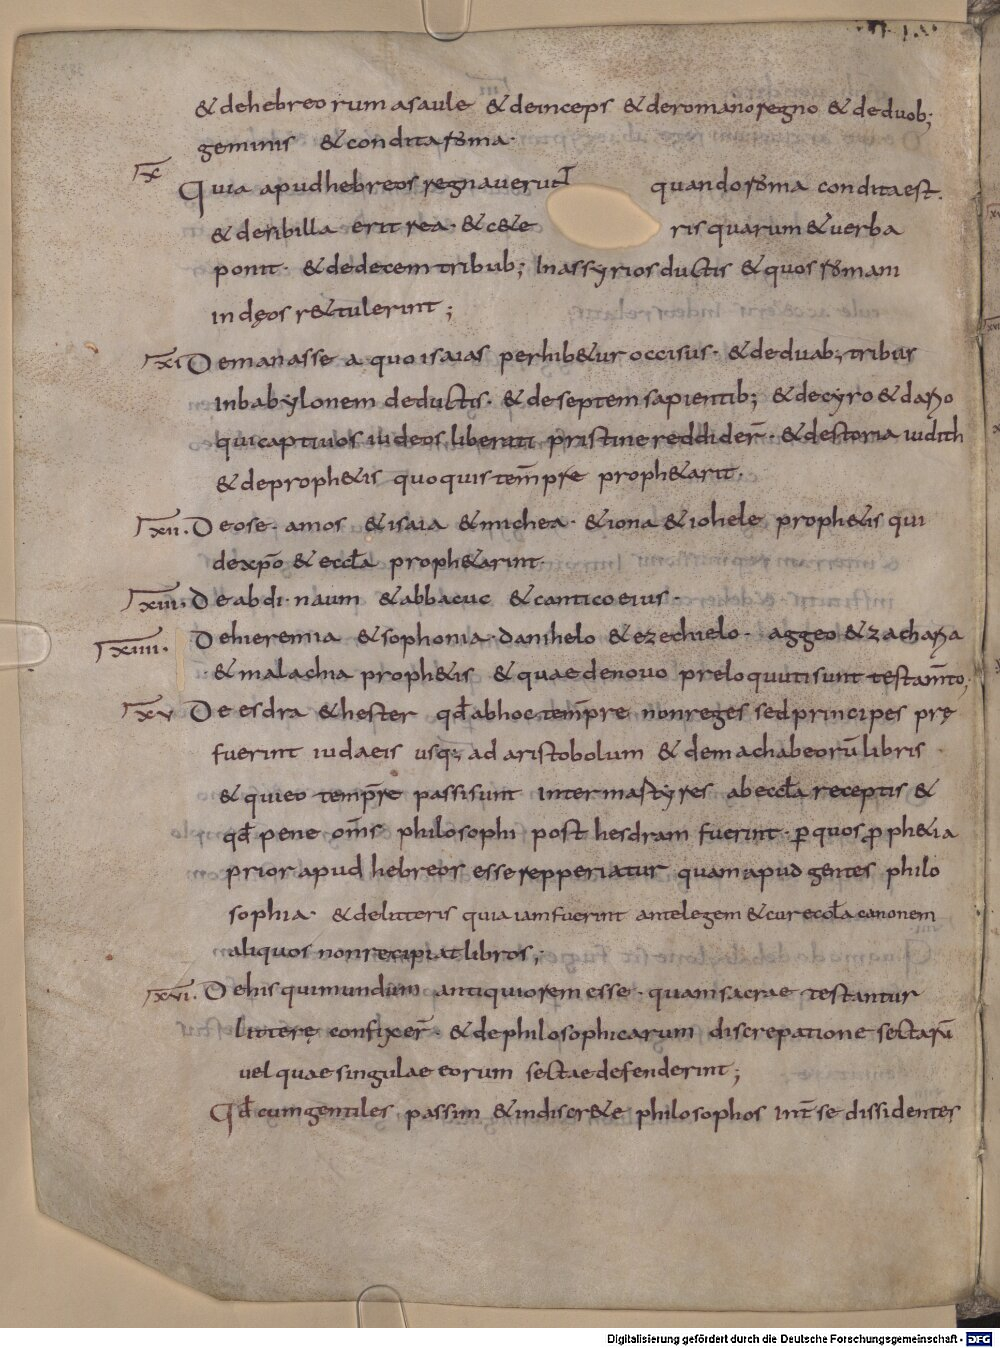 & dehebreorum asaule & deinceps & deromano regno & deduob;
geminis & condita roma·
x̅ Quia apud hebreos regnaverunt quando roma condita est·
& desibilla eritrea· & c&e ris quarum & verba
ponit· & dedecem tribub; In assyrios ductis & quos romani
in dęos r&tulerint;
x̅i Demanasse a quo isaias perhib&ur occisus· & deduab; tribus
inbabylonem deductis· & deseptem sapientib; & decyro & dario
qui captivos iudeos liberati pristine reddider̄· & destoria iudith
& deproph&is quo quis tem̄pre proph&arit·
x̅ii· De ose· amos & isaia & michea· & iona & iohele proph&is qui
dexp̄o & eccła proph&arint·
x̅iii· De abdi· naum & abbacuc & cantico eius·
x̅iiii· De hieremia & sophonia· danihelo & ezechielo· aggeo & zacharia
& malachia proph&is & quae denovo preloquuti sunt testam̄to;
x̅v De esdra & hester qđ ab hoc tem̄pre non reges sed principes prę
fuerint iudaeis usq; ad aristobolum & demachabeorū libris
& quieo tem̄pre passi sunt inter martyres ab eccła receptis &
qđ pene om̄s philosophi post hesdram fuerint· ꝑ quos ꝓph&ia
prior apud hebreos esse repperiatur quam apud gentes philo
sophia· & delitteris quia iam fuerint antelegem & cur eccła canonem
aliquos non recipiat libros;
x̅vi· De his qui mundum antiquiorem esse· quam sacrae testantur
litterę confixer̄· & dephilosophicarum discrepatione sectarū
uel quae singulae eorum sectae defenderint;
Qđ cum gentiles passim & indiscr&e philosophos int̄ se dissidentes
Digitalisierung gefördert durch die Deutsche Forschungsgemeinschaft - DFG